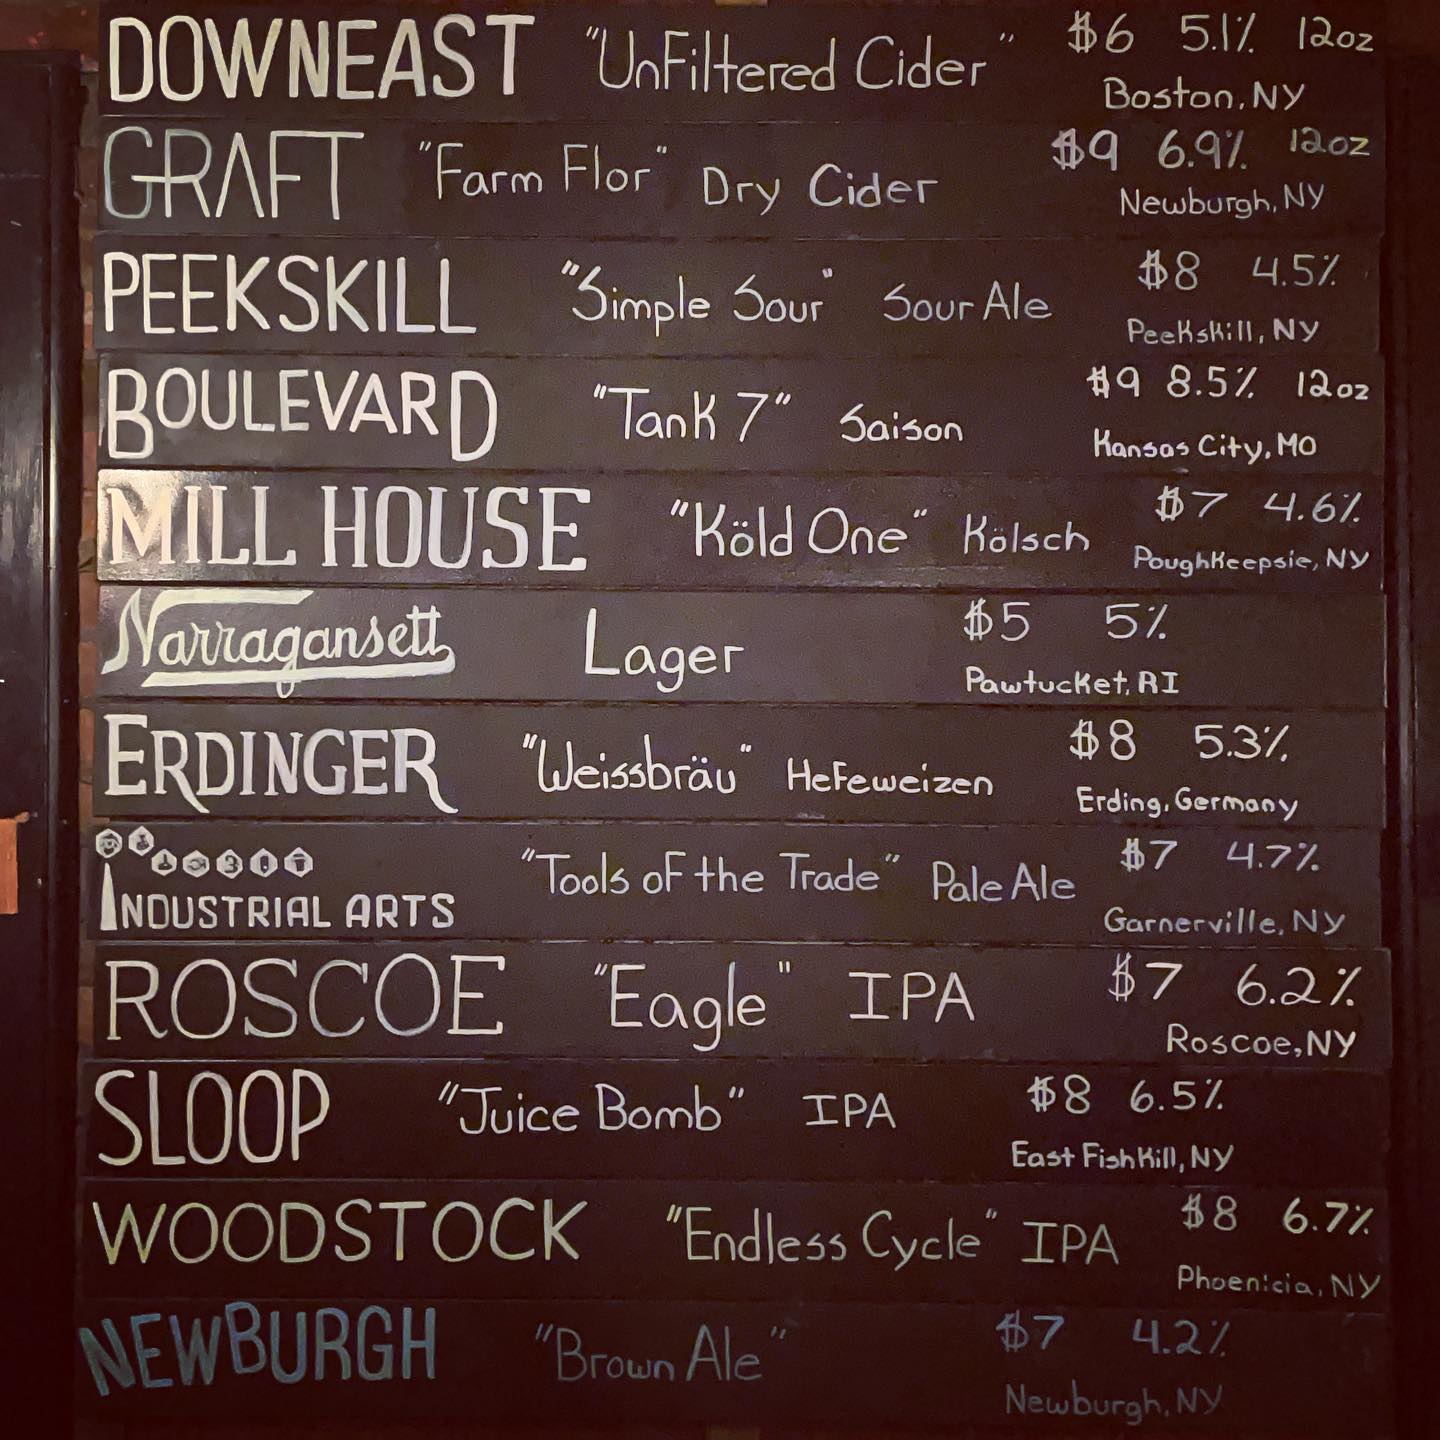 DOWNEAST "UnFiltered Cider" $6 5.1% 12oz
Boston, NY
GRAFT "Farm Flor" Dry Cider $9 6.9% 12oz
Newburgh, NY
PEEKSKILL "Simple Sour" Sour Ale $8 4.5%
Peekskill, NY
BOULEVARD "Tank 7" Saison $9 8.5% 12oz
Kansas City, MO
MILL HOUSE "Köld One" Kölsch $7 4.6%
Poughkeepsie, NY
Narragansett Lager $5 5%
Pawtucket, RI
ERDINGER "Weissbräu" Hefeweizen $8 5.3%
Erding, Germany
INDUSTRIAL ARTS "Tools of the Trade" Pale Ale $7 4.7%
Garnerville, NY
ROSCOE "Eagle" IPA $7 6.2%
Roscoe, NY
SLOOP "Juice Bomb" IPA $8 6.5%
East Fishkill, NY
WOODSTOCK "Endless Cycle" IPA $8 6.7%
Phoenicia, NY
NEWBURGH "Brown Ale" $7 4.2%
Newburgh, NY